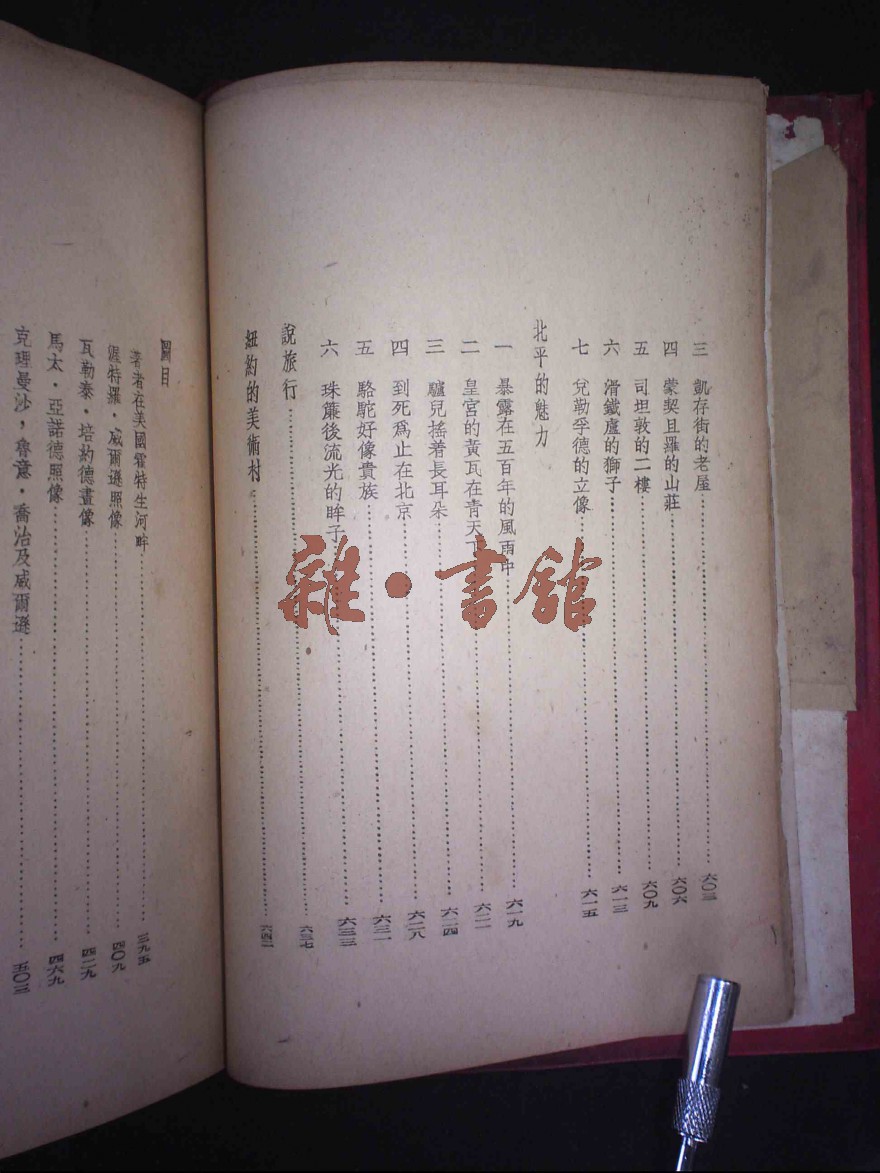 三 凱存街的老屋……六〇三
四 蒙契且羅的山莊……六〇六
五 司坦敦的二樓……六〇九
六 滑鐵盧的獅子……六一三
七 兌勒孚德的立像……六一五
北平的魅力
一 暴露在五百年的風雨中……六一九
二 皇宮的黃瓦在青天下……六二一
三 驢兒搖着長耳朵……六二四
四 到死爲止在北京……六二八
五 駱駝好像貴族……六三一
六 珠簾後流光的眸子……六三三
說旅行……六三七
紐約的美術村……六四二
圖目
著者在美國霍特生河畔……三九五
渥特羅·威爾遜照像……四〇九
瓦勒泰·培約德畫像……四二九
馬太·亞諾德照像……四六九
克理曼沙，魯意·喬治及威爾遜……五〇三
雜·書館